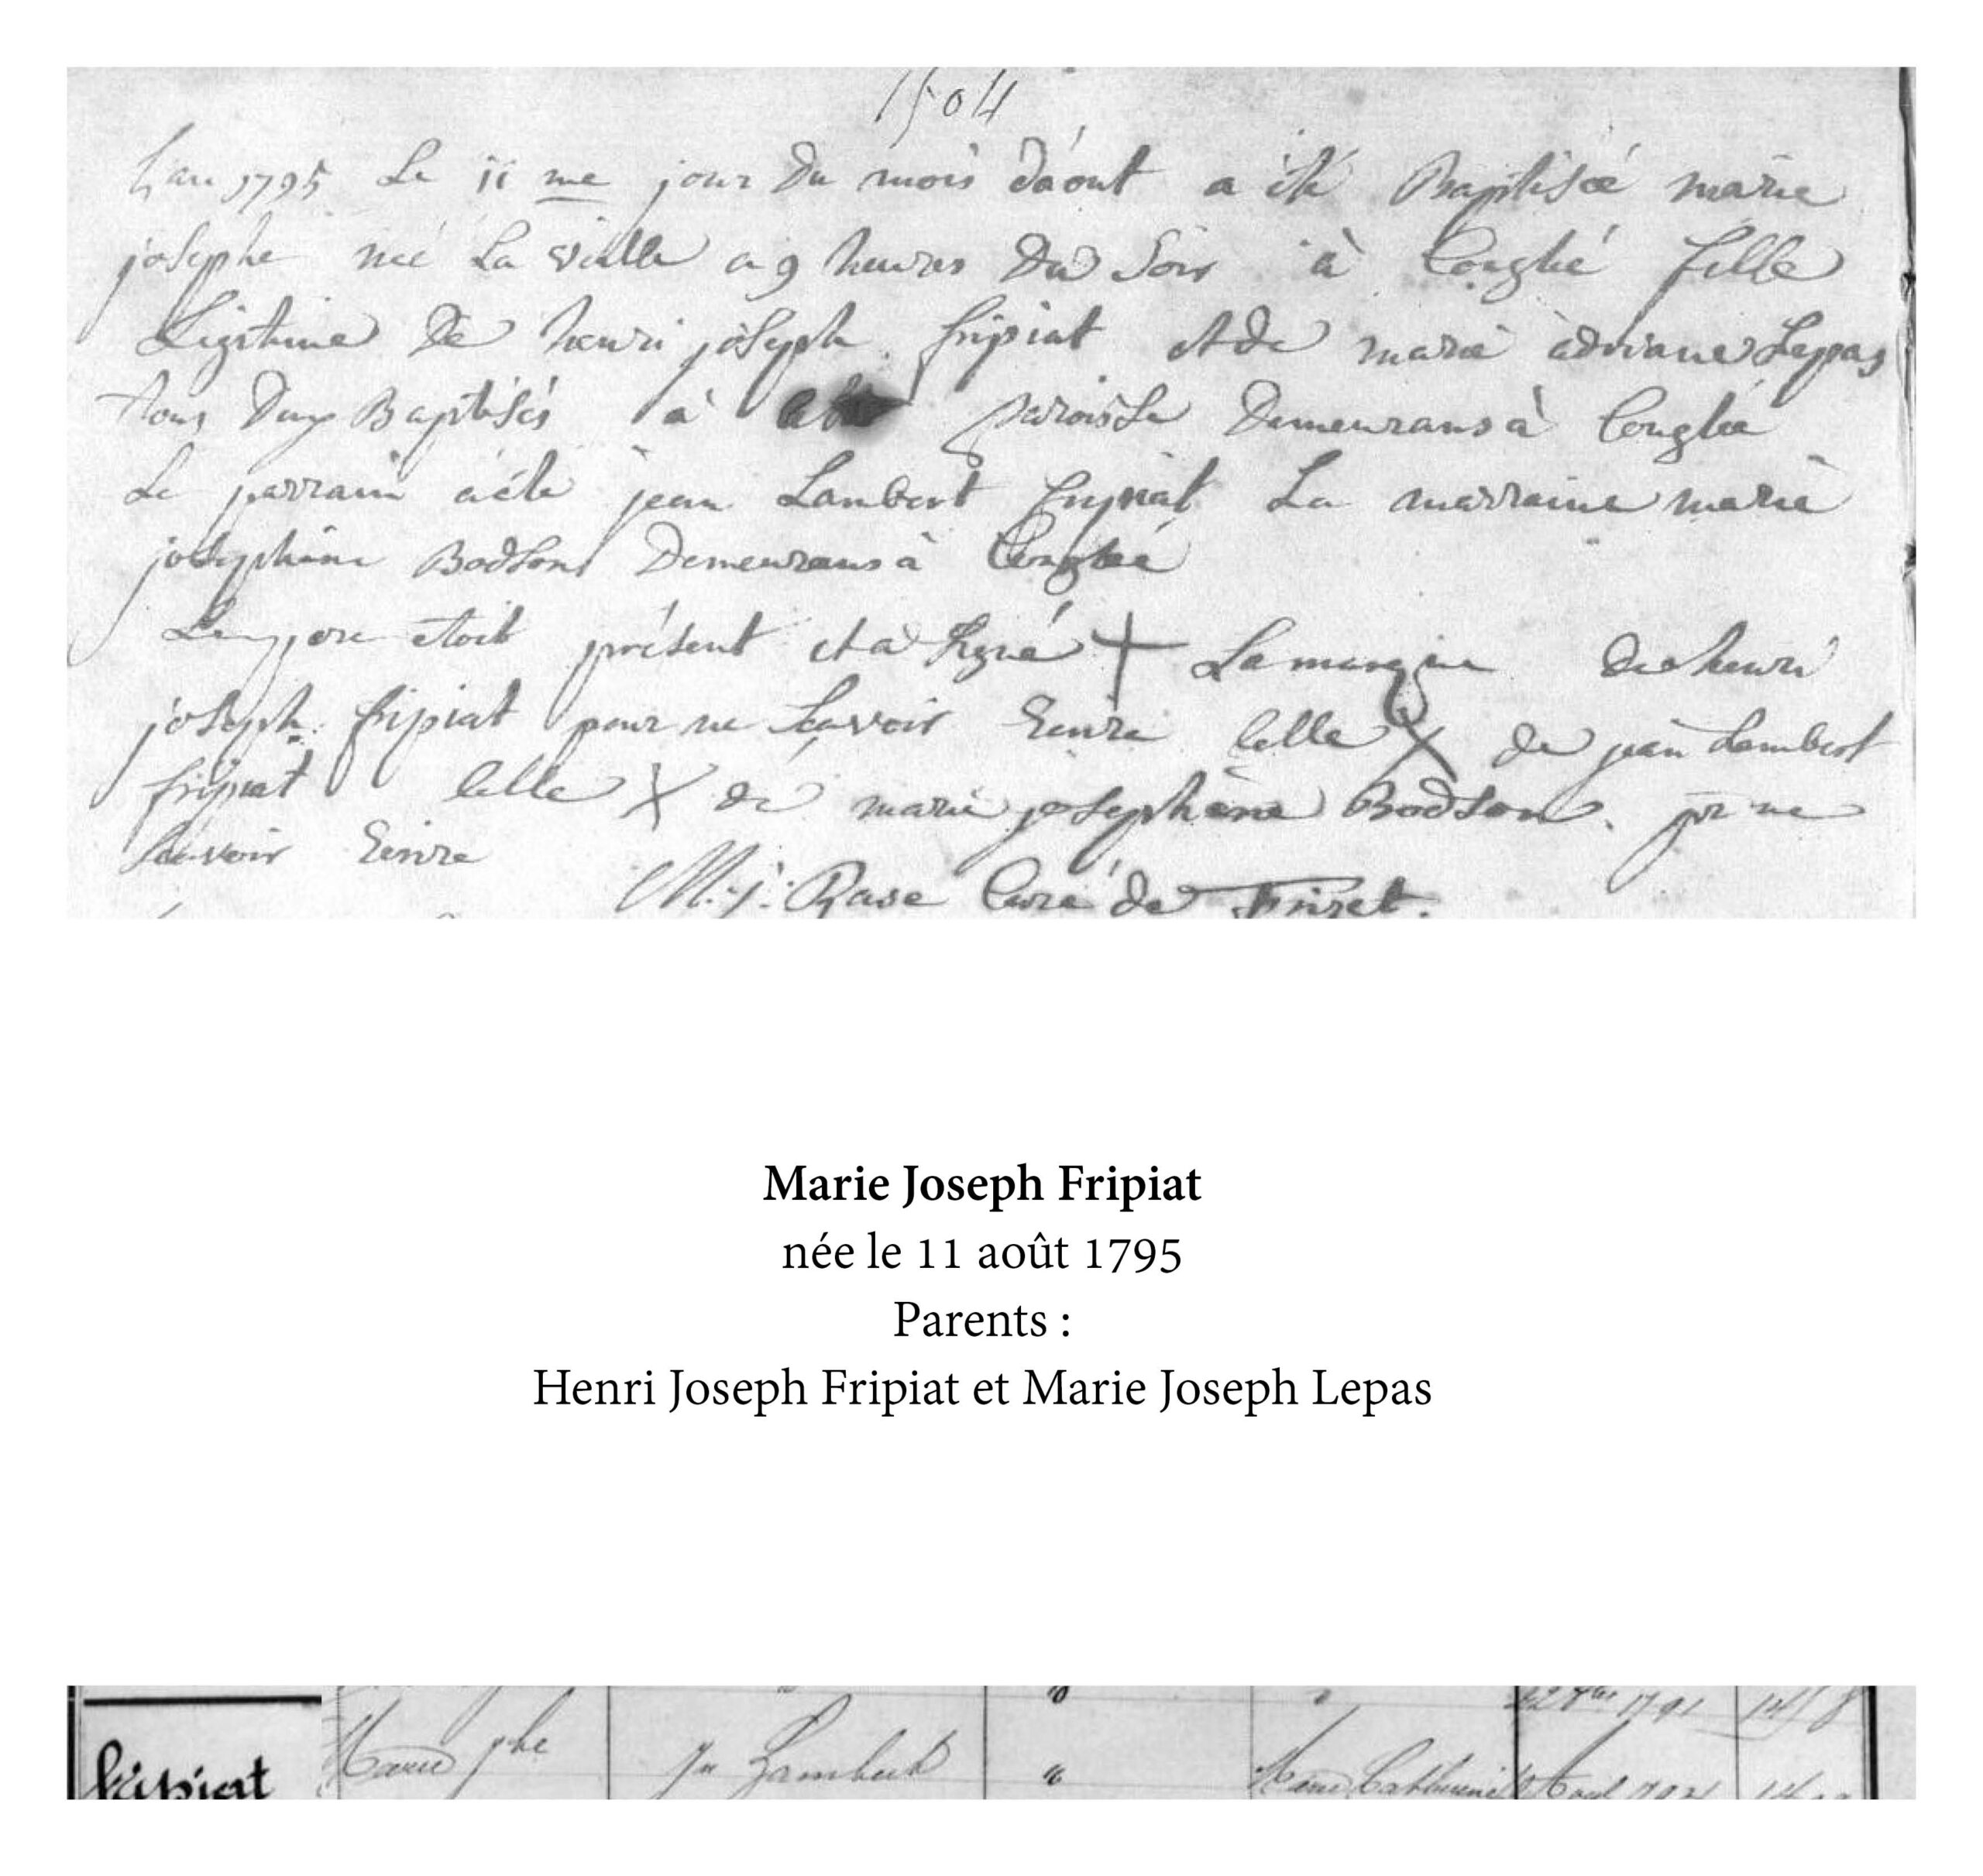 1504
L'an 1795 Le 11 me jour Du mois d'aout a été Baptisée marie
josephe neé La veille a 9 heures Du Soir à Conghé fille
Legitime De henri joseph fripiat et de marie adriane Lepas
tous Deux Baptisés à paroisse Demeurans à Conghé
Le parrain a été jean Lambert fripiat La marraine marie
josephine Bodson Demeurans à Conghé
Le pere etoit présent et a signé + La marque De henri
joseph fripiat pour ne Scavoir Ecrire celle X de jean Lambert
fripiat celle X de marie josephine Bodson pr ne
Scavoir Ecrire
M: j: Rase Curé de Finet.
Marie Joseph Fripiat
née le 11 août 1795
Parents :
Henri Joseph Fripiat et Marie Joseph Lepas
1791
fripiat Marie jphe Jn Lambert " Marie Catherine